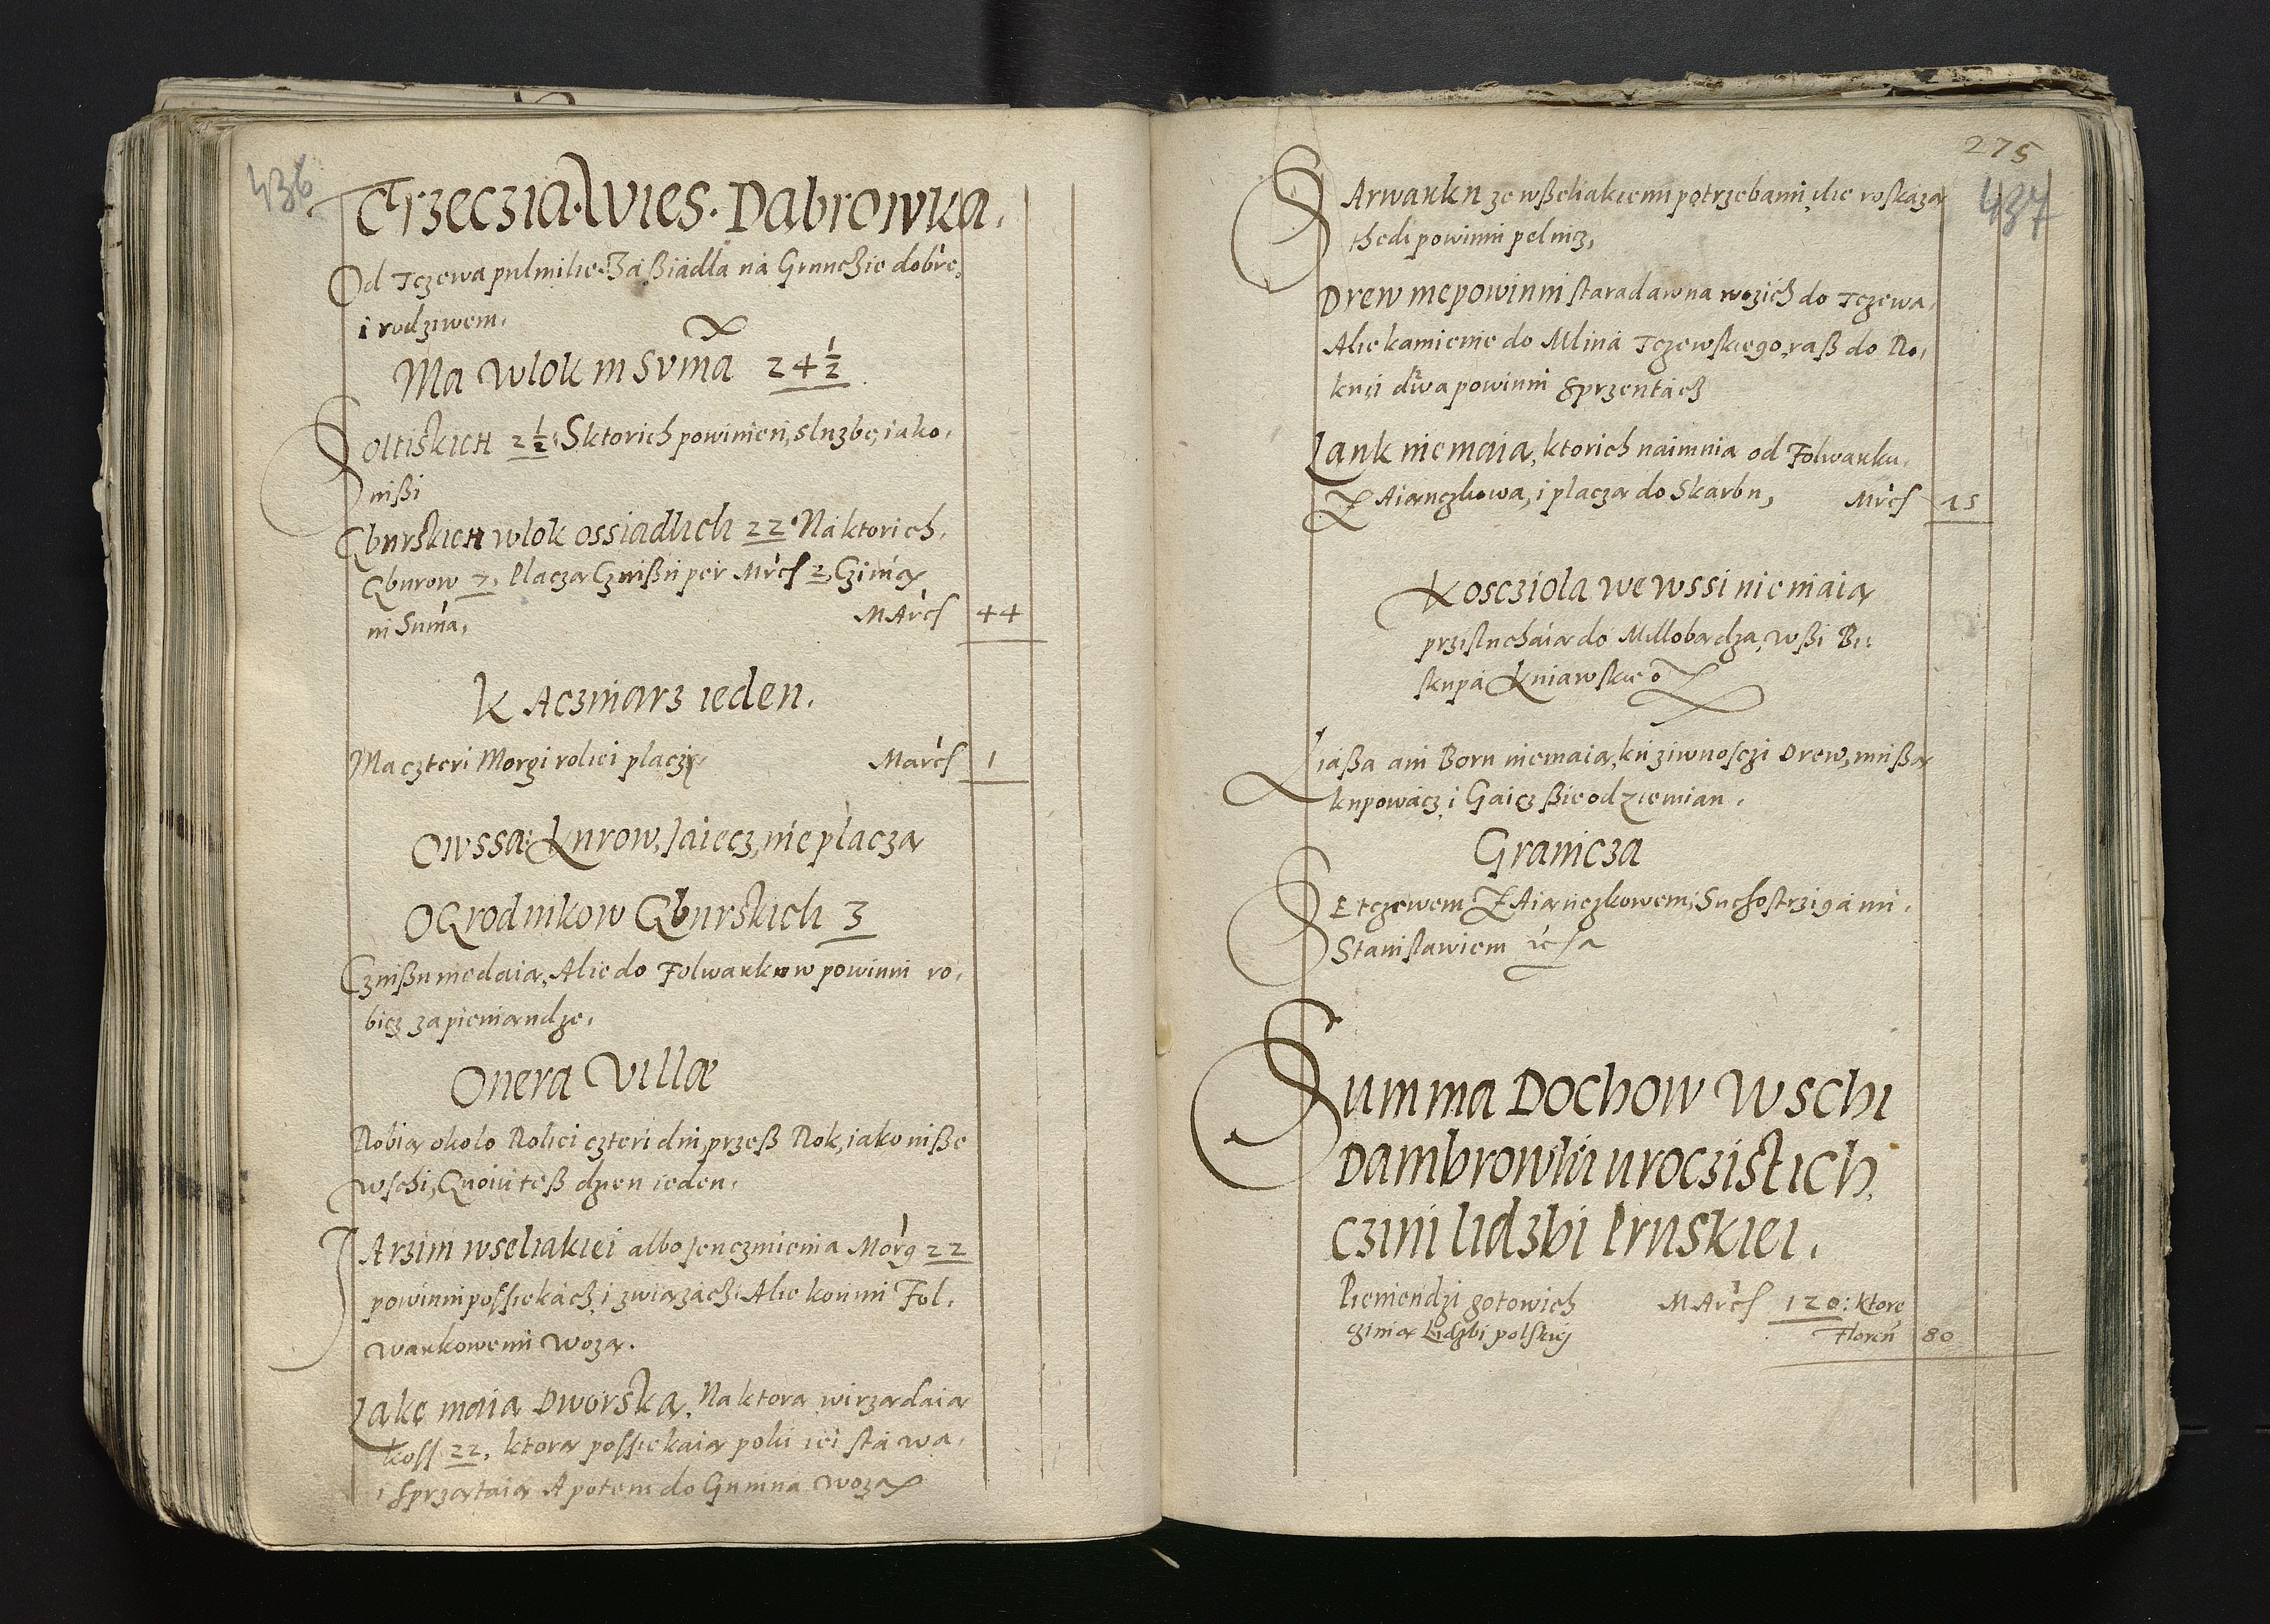 436
Trzeczia Wies Dabrowka.
Od Tczewa pulmilie. Zaßiadla na Grunchie dobre,
i rodziwem.
Ma Wlok in Suma 24 1/2
Soltiskich 2 1/2. S ktorich powinien, sluzbe, iako
nißi
Gburskich wlok ossiadlich 22. Na ktorich,
Gburow 7. Placza Czinßu per Marcs 2, Czinia
in Suma, Marcs 44
Kaczmarz ieden.
Ma czteri Morgi roliei placzi Marcs 1
Owssa, Kurow, Jaiecz, nie placza
Ogrodnikow Gburskich 3
Czinßu niedaia, Alie do Folwarkow powinni ro,
bicz za pieniandze.
Onera Villæ
Robia okolo Roliei czteri dni, przeß Rok, iako niße
wschi, Gnoiu teß dzien ieden.
Jarzim wseliakiei albo Jenczmienia Morg 22
powinni possiekacz, i zwiazacz. Alie konmi Fol,
warkowemi woza.
Lake maia Dworska, Na ktora wirzadaia
koss 22, ktora possiekaia poki iei stawa,
i sprzataia A potem do Gumna woza
275
437
Sarwarku ze wßeliakiemi potrzebami, ilie roskaza
thedi powinni pelnicz,
Drew nie powinni staradawna wozich do Tczewa,
Alie kamienie do Mlina Tczewskiego, raß do Ro,
ku, i dwa powinni sprzentach
Lank niemaia, ktorich naimnia od Folwarku,
Zaianczkowa, i placza do Skarbu, Marcs 15
Koscziola we wssi niemaia
przisluchaia do Millobadza, wßi Bi:
skupa Kuiawskieo
Liaßa ani Boru niemaia, ku ziwnosczi Drew, mußa
kupowacz i Gaicz ßie od ziemian.
Granicza
Se tczewem Zaianczkowem, Suchostrzigami,
Stanislawiem
Summa Dochow wschi
Dambrowki uroczistich,
czini lidzbi Pruskiei.
Pieniendzi gotowich Marcs 120: ktore
czinia Lidzbi polskiej Floren 80